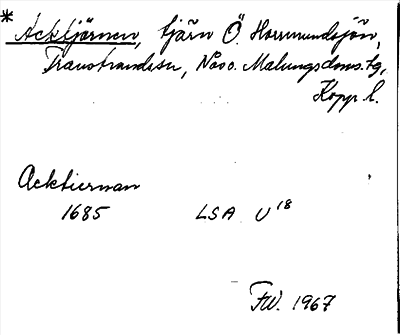 * Acktjärnen, tjärn Ö. Horrmundsjön,
Transtrandssn, Näs o. Malungs dms. tg,
Kopp. l.
Acktiernan
1685 LSA U 18
FW. 1967